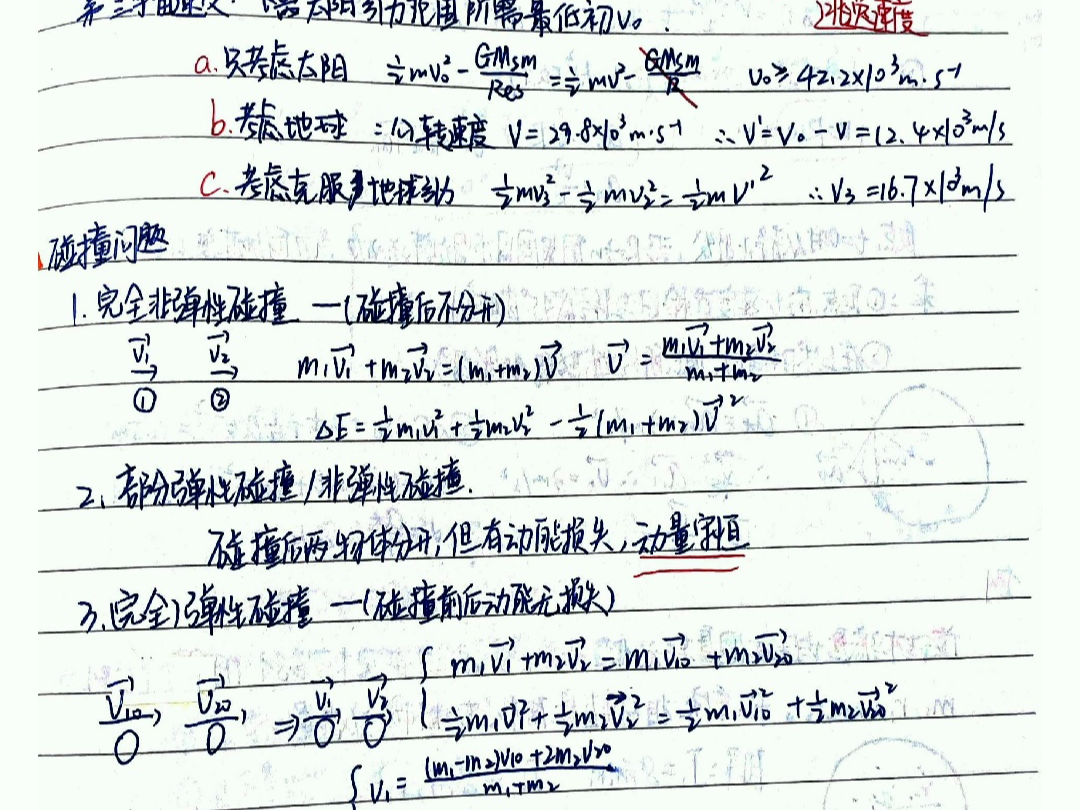 第三宇宙速度：飞出太阳引力范围所需最低初V₀. 逃逸速度
a.只考虑太阳 ½mv₀² - GMsm/Res = ½mv² - GMsm/R V₀≥42.2×10³m·s⁻¹
b.考虑地球：公转速度 V=29.8×10³m·s⁻¹ ∴V'=V₀-V=12.4×10³m/s
C.考虑克服地球引力 ½mv₃² - ½mv₂² = ½mV'² ∴V₃=16.7×10³m/s
碰撞问题
1.完全非弹性碰撞 —(碰撞后不分开)
V₁→ V₂→ m₁V₁→+m₂V₂→=(m₁+m₂)V→ V→=(m₁V₁→+m₂V₂→)/(m₁+m₂)
① ②
ΔE=½m₁v₁²+½m₂v₂² - ½(m₁+m₂)V→²
2.部分弹性碰撞/非弹性碰撞.
碰撞后两物体分开,但有动能损失,动量守恒
3.完全弹性碰撞 —(碰撞前后动能无损失)
{ m₁V₁→+m₂V₂→=m₁V₁₀→+m₂V₂₀→
V₁₀→ V₂₀→ ⇒ V₁→ V₂→ ½m₁V→²+½m₂V₂→²=½m₁V₁₀→²+½m₂V₂₀→²
{ V₁=((m₁-m₂)V₁₀+2m₂V₂₀)/(m₁+m₂)